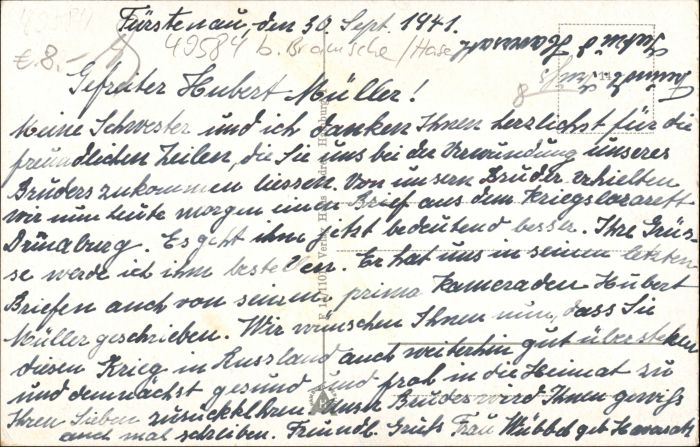 Fürstenau, den 30. Sept. 1941.
49584 b. Bramsche/Hase
€ 8.-
8
Gefreiter Hubert Müller!
Meine Schwester und ich danken Ihnen herzlichst für die
freundlichen Zeilen, die Sie uns bei der Verwundung unseres
Bruders zukommen liessen. Von unserm Bruder erhielten
wir nun heute morgen einen Brief aus dem Kriegslazarett
Dünaburg. Es geht ihm jetzt bedeutend besser. Ihre Grüs-
se werde ich ihm bestellen. Er hat uns in seinen letzten
Briefen auch von seinem prima Kameraden Hubert
Müller geschrieben. Wir wünschen Ihnen nun, dass Sie
diesen Krieg in Russland auch weiterhin gut überstehen
und demnächst gesund und froh in die Heimat zu
Ihren Lieben zurückkehren. Unser Bruder wird Ihnen gewiß
auch mal schreiben. Freundl. Gruß Frau Wübbel geb.
Verlag